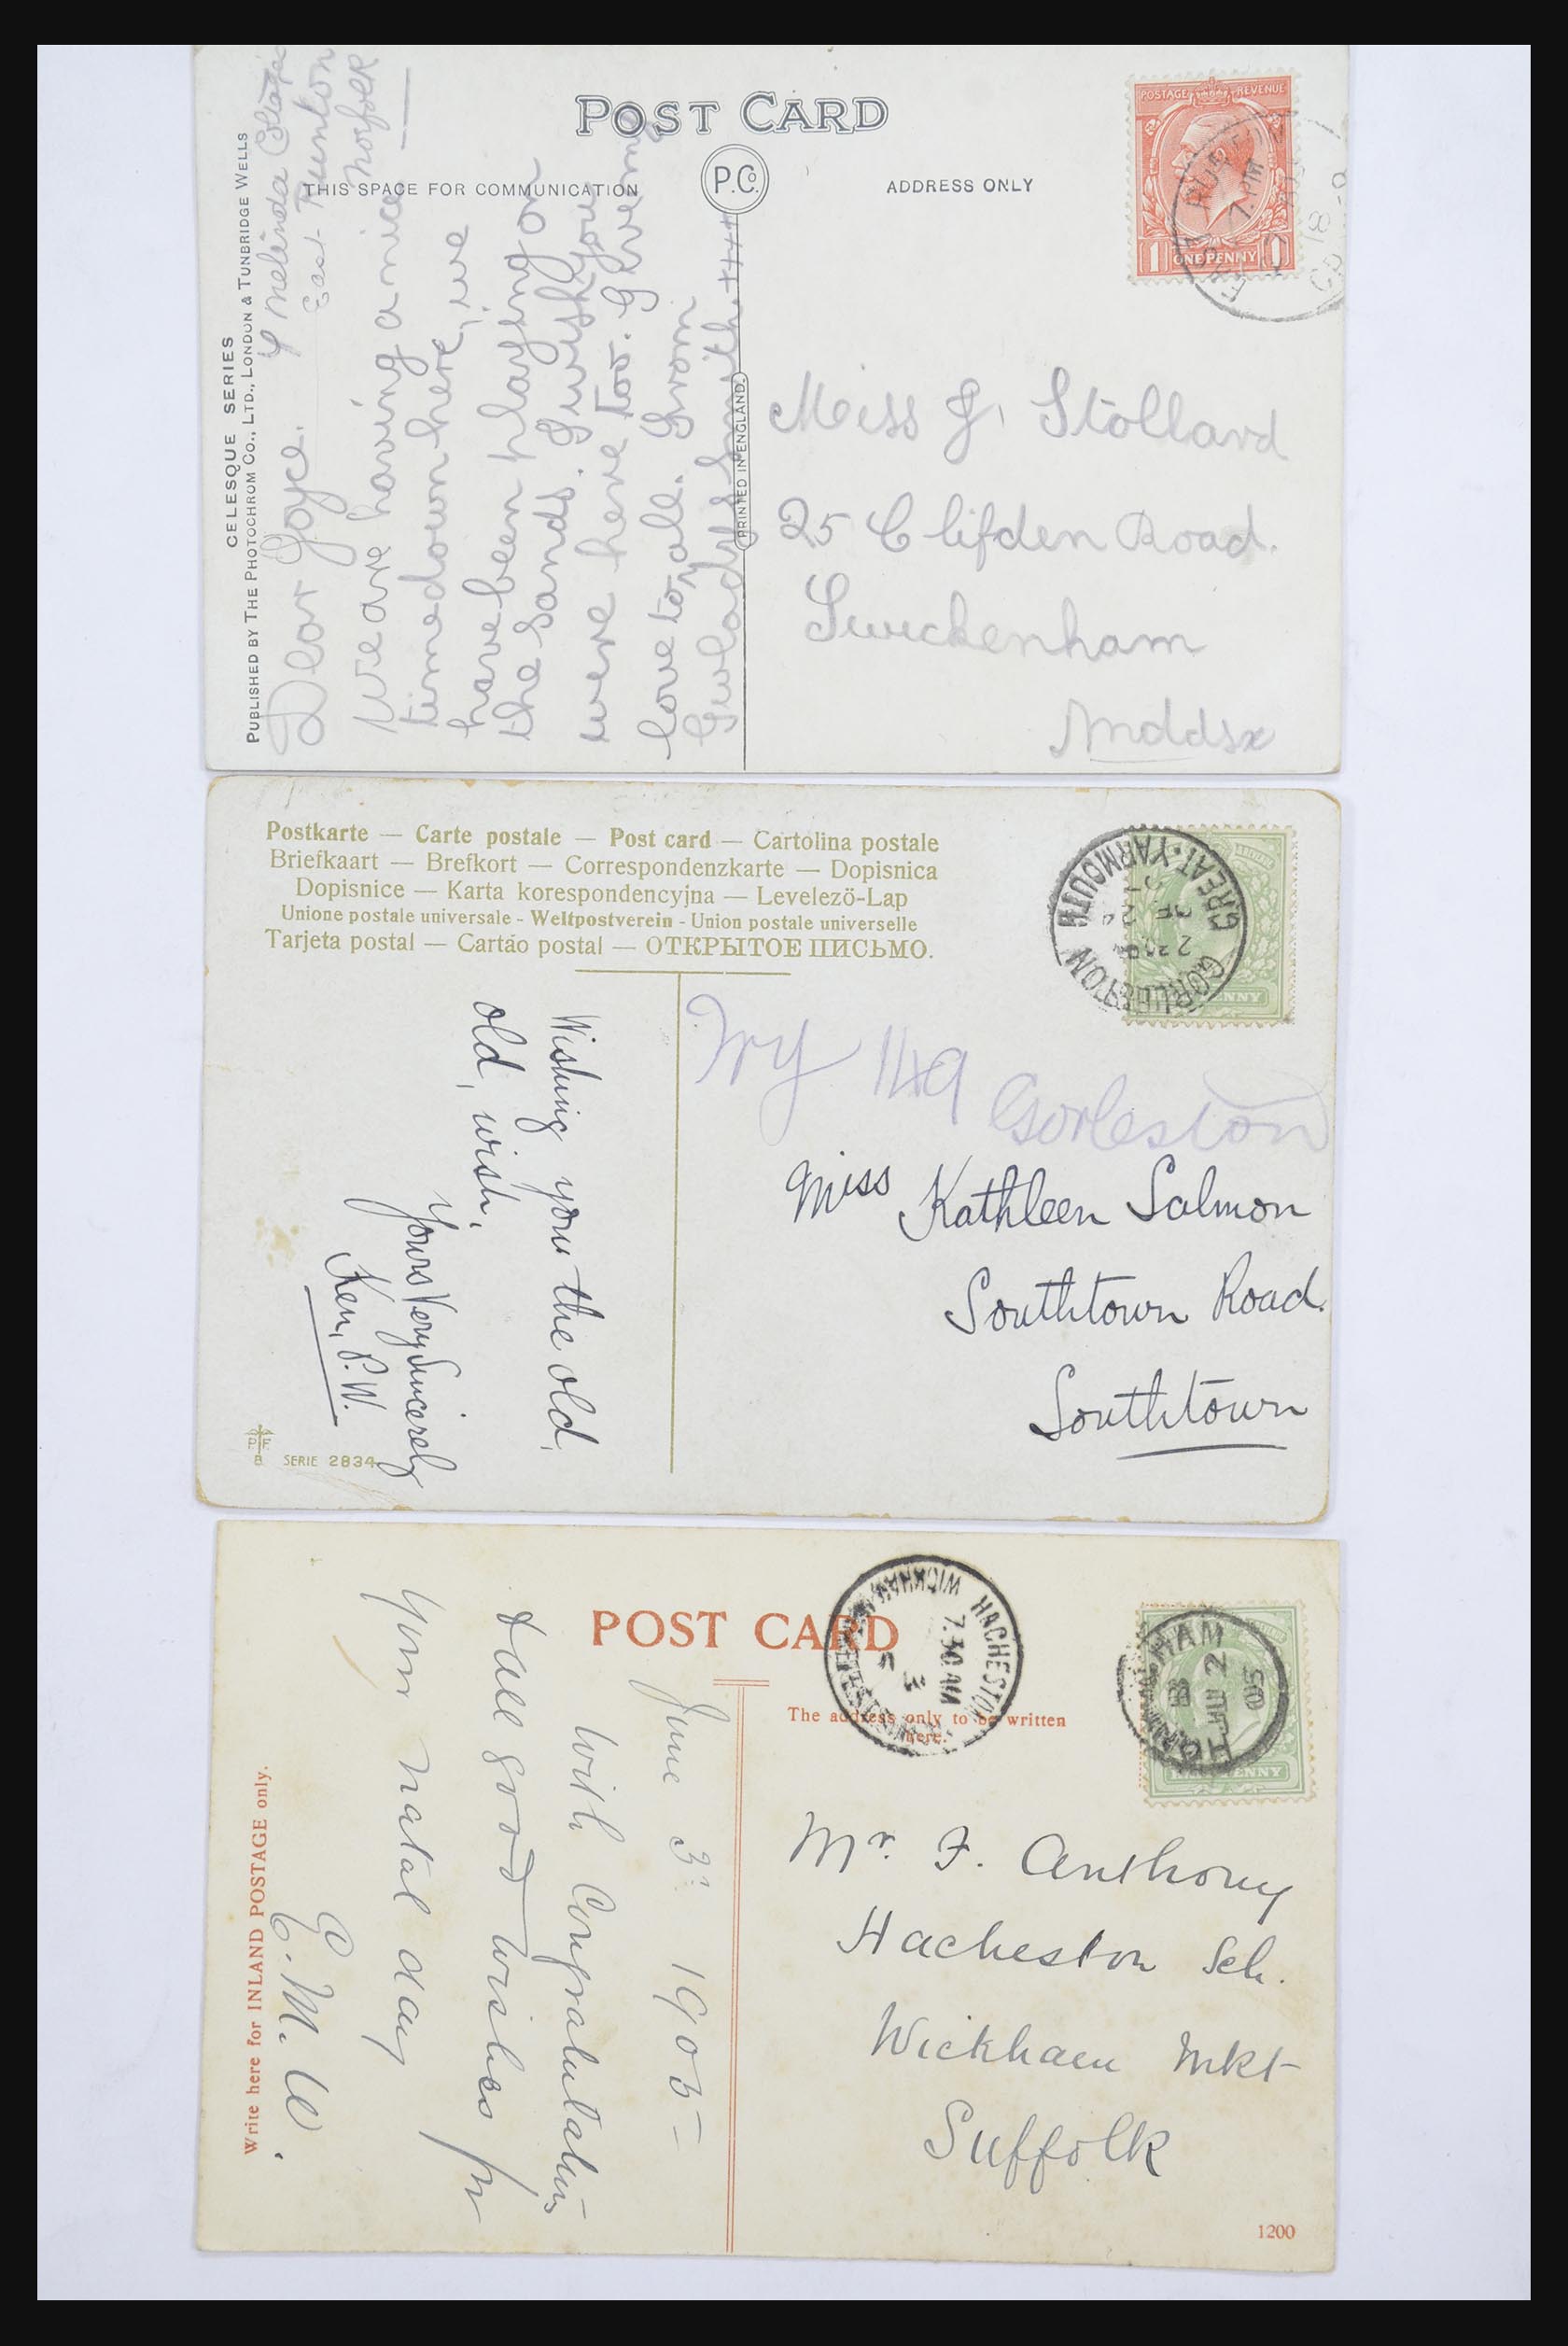 POST CARD
THIS SPACE FOR COMMUNICATION
P.Co.
ADDRESS ONLY
POSTAGE REVENUE
1 ONE PENNY 1
7. PM
CELESQUE SERIES
PUBLISHED BY THE PHOTOCHROM CO., LTD., LONDON & TUNBRIDGE WELLS
PRINTED IN ENGLAND.
4 Melinda Cottage
East Runton
Norfolk
Dear Joyce.
We are having a nice
time down here, we
have been playing on
the sands. I wish you
were here too. Given
love to all. From
Gwladys Smith ++++
Miss J. Stollard
25 Clifden Road.
Twickenham
Mddsx
Postkarte — Carte postale — Post card — Cartolina postale
Briefkaart — Brefkort — Correspondenzkarte — Dopisnica
Dopisnice — Karta korespondencyjna — Levelezö-Lap
Unione postale universale - Weltpostverein - Union postale universelle
Tarjeta postal — Cartáo postal — ОТКРЫТОЕ ПИСЬМО.
GORLESTON
GREAT-YARMOUTH
Wishing you the old,
old, wish,
Yours Very Sincerely
Ken, P.W.
P.F.
B
SERIE 2834
Try 149
Gorleston
Miss Kathleen Salmon
Southtown Road.
Southtown
POST CARD
HACHESTON
WICKHAM
7.30 AM
3
The address only to be written
here.
HAM
JU 2
05
Write here for INLAND POSTAGE only.
June 3rd 1905 —
With Congratulations
& all good wishes for
your natal day
E. M. W.
Mr. F. Anthony
Hacheston Sch.
Wickham Mkt
Suffolk
1200